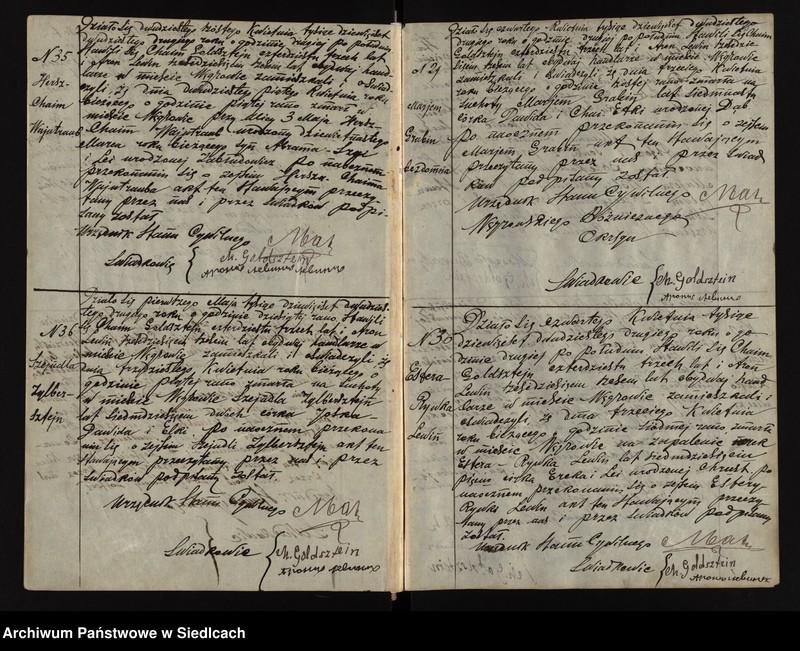 N 35
Hersz-
Chaim
Wajntraub
Działo się dwudziestego szóstego Kwietnia tysiąc dziewięćset
dwudziestego drugiego roku o godzinie drugiej po południu
stawili się Chaim Goldsztejn czterdzieści trzech lat
i Aron Lewin sześćdziesięciu sześciu lat obydwaj hand
larze w mieście Węgrowie zamieszkali i oświad
czyli, iż dnia dwudziestego piątego Kwietnia roku
bieżącego o godzinie piątej rano zmarł w
mieście Węgrowie przy ulicy 3 Maja Hersz-
Chaim Wajntraub urodzony dziewiętnastego
Marca roku bieżącego syn Abrama-
i Łei urodzonej Po naocznem
przekonaniu się o zejściu Hersza-Chaima
Wajntrauba akt ten stawającym przeczy
tany przez nas i przez świadków podpi
sany został
Urzędnik Stanu Cywilnego
Świadkowie { Ch. Goldsztein
N 36
Szejndla
Zylber-
sztejn
Działo się pierwszego Maja tysiąc dziewięćset dwudzies
tego drugiego roku o godzinie dziesiątej rano. Stawili
się Chaim Goldsztejn czterdzieści trzech lat i Aron
Lewin sześćdziesięciu sześciu lat obydwaj handlarze w
mieście Węgrowie zamieszkali i oświadczyli iż
dnia trzydziestego Kwietnia roku bieżącego o
godzinie piątej rano zmarła na suchoty
w mieście Węgrowie Szejndla Zylbersztejn
lat siedmdziesięciu dwóch córka Joska-
Dawida i Elki po naocznem przekona
niu się o zejściu Szejndli Zylbersztejn akt ten
stawającym przeczytany przez nas i przez
świadków podpisany został.
Urzędnik Stanu Cywilnego
Świadkowie { Ch. Goldsztein
N 29
Marjem
Grabin
bezdomna
Działo się czwartego Kwietnia tysiąc dziewięćset dwudziestego
drugiego roku o godzinie drugiej po południu Stawili się Chaim
Goldsztejn czterdzieści trzech lat i Aron Lewin sześćdzie
sięciu sześciu lat obydwaj handlarze w mieście Węgrowie
zamieszkali i oświadczyli, iż dnia trzeciego Kwietnia
roku bieżącego o godzinie szóstej rano zmarła na
suchoty Marjem Grabin lat siedmnastu
córka Dawida i Chai-Etki urodzonej Dąb
po naocznem przekonaniu się o zejściu
Marjem Grabin akt ten stawającym
przeczytany przez nas i przez świad
ków podpisany został
Urzędnik Stanu Cywilnego
Węgrowskiego Bóżniczego
Okręgu
Świadkowie { Ch. Goldsztein
N 30
Estera
Rywka
Lewin
Działo się czwartego Kwietnia tysiąc
dziewięćset dwudziestego drugiego roku o go
dzinie drugiej po południu stawili się Chaim
Goldsztejn czterdzieści trzech lat i Aron
Lewin sześćdziesięciu sześciu lat obydwaj hand
larze w mieście Węgrowie zamieszkali i
oświadczyli, iż dnia trzeciego Kwietnia
roku bieżącego o godzinie siódmej rano zmarła
w mieście Węgrowie na zapalenie nerek
Estera-Rywka Lewin lat siedmdziesięciu
pięciu córka i Łei urodzonej Chrust. po
naocznem przekonaniu się o zejściu Estery
Rywki Lewin akt ten stawającym przeczy
tany przez nas i przez świadków podpisany
został.
Urzędnik Stanu Cywilnego
Świadkowie { Ch. Goldsztein
Archiwum Państwowe w Siedlcach